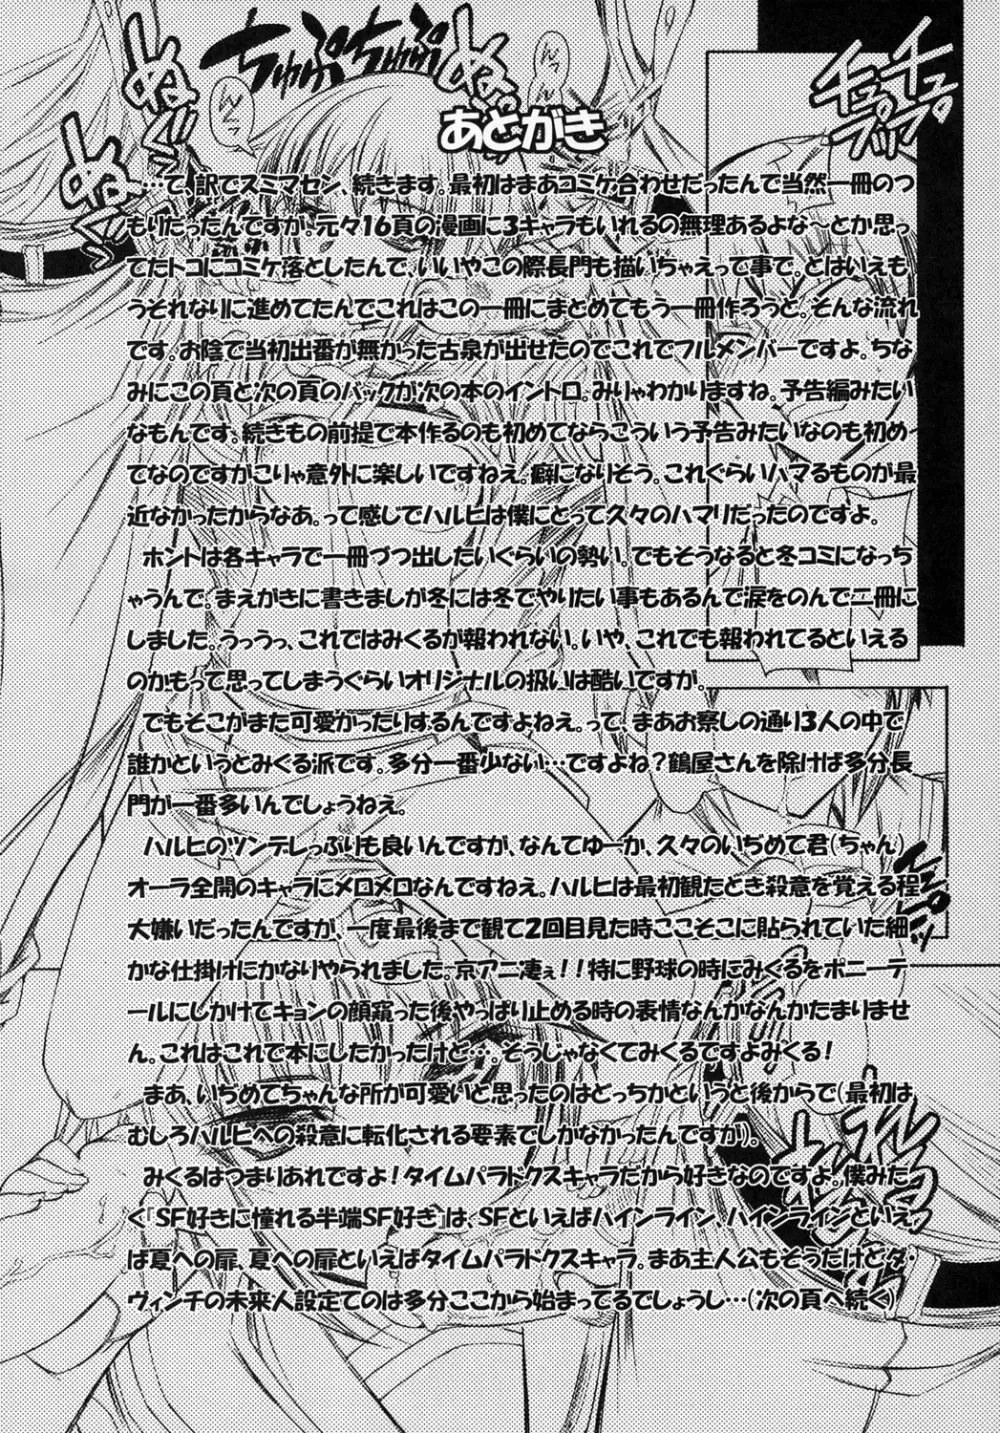 あとがき
…て、訳でスミマセン、続きます。最初はまあコミケ合わせだったんで当然一冊のつ
もりだったんですが、元々16頁の漫画に3キャラもいれるの無理あるよな～とか思っ
てたトコにコミケ落としたんで、いいやこの際長門も描いちゃえって事で。とはいえも
うそれなりに進めてたんでこれはこの一冊にまとめてもう一冊作ろうと。そんな流れ
です。お陰で当初出番が無かった古泉が出せたのでこれでフルメンバーですよ。ちな
みにこの頁と次の頁のバックが次の本のイントロ。みりゃわかりますね。予告編みたい
なもんです。続きもの前提で本作るのも初めてならこういう予告みたいなのも初め
てなのですがこりゃ意外に楽しいですねえ。癖になりそう。これぐらいハマるものが最
近なかったからなあ。って感じでハルヒは僕にとって久々のハマリだったのですよ。
ホントは各キャラで一冊づつ出したいぐらいの勢い。でもそうなると冬コミになっち
ゃうんで。まえがきに書きましが冬には冬でやりたい事もあるんで涙をのんで二冊に
しました。うっうっ、これではみくるが報われない。いや、これでも報われてるといえる
のかもって思ってしまうぐらいオリジナルの扱いは酷いですが。
でもそこがまた可愛かったりするんですよねえ。って、まあお察しの通り3人の中で
誰かというとみくる派です。多分一番少ない…ですよね？鶴屋さんを除けば多分長
門が一番多いんでしょうねえ。
ハルヒのツンテレっぷりも良いんですが、なんてゆーか、久々のいぢめて君(ちゃん)
オーラ全開のキャラにメロメロなんですねえ。ハルヒは最初観たとき殺意を覚える程
大嫌いだったんですが、一度最後まで観て2回目見た時ここそこに貼られていた細
かな仕掛けにかなりやられました。京アニ凄ぇ！！特に野球の時にみくるをポニーテ
ールにしかけてキョンの顔窺った後やっぱり止める時の表情なんかなんかたまりませ
ん。これはこれで本にしたかったけど…。そうじゃなくてみくるですよみくる！
まあ、いぢめてちゃんな所が可愛いと思ったのはどっちかというと後からで(最初は
むしろハルヒへの殺意に転化される要素でしかなかったんですが)。
みくるはつまりあれですよ！タイムパラドクスキャラだから好きなのですよ。僕みた
く『SF好きに憧れる半端SF好き』は、SFといえばハインライン、ハインラインといえ
ば夏への扉、夏への扉といえばタイムパラドクスキャラ。まあ主人公もそうだけどダ・
ヴィンチの未来人設定てのは多分ここから始まってるでしょうし…(次の頁へ続く)
ちゅぷちゅぷ